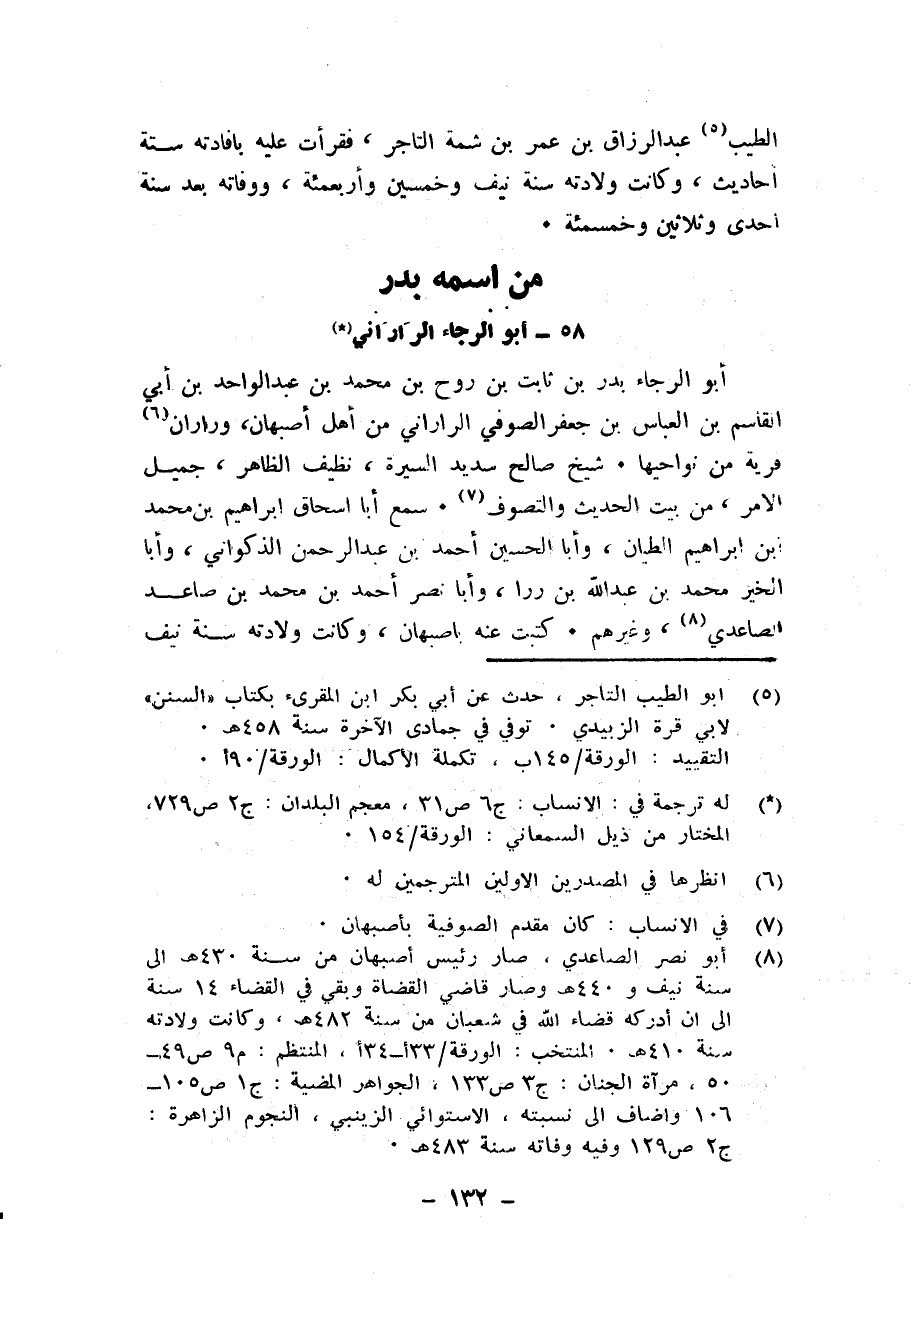 الطيب(٥) عبدالرزاق بن عمر بن شمة التاجر ، فقرأت عليه بافادته ستة
أحاديث ، وكانت ولادته سنة نيف وخمسين وأربعمئة ، ووفاته بعد سنة
أحدى وثلاثين وخمسمئة ٠
من اسمه بدر
٥٨ ــ أبو الرجاء الرَارَاني(*)
أبو الرجاء بدر بن ثابت بن روح بن محمد بن عبدالواحد بن أبي
القاسم بن العباس بن جعفر الصوفي الراراني من أهل أصبهان، وراران(٦)
قرية من نواحيها ٠ شيخ صالح سديد السيرة ، نظيف الظاهر ، جميل
الامر ، من بيت الحديث والتصوف(٧) ٠ سمع أبا اسحاق ابراهيم بن محمد
ابن ابراهيم الطيان ، وأبا الحسين أحمد بن عبدالرحمن الذكواني ، وأبا
الخير محمد بن عبدالله بن ررا ، وأبا نصر أحمد بن محمد بن صاعد
الصاعدي(٨) ، وغيرهم ٠ كتبت عنه باصبهان ، وكانت ولادته سنة نيف
(٥) ابو الطيب التاجر ، حدث عن أبي بكر ابن المقرىء بكتاب «السنن»
لابي قرة الزبيدي ٠ توفي في جمادى الآخرة سنة ٤٥٨هـ ٠
التقييد : الورقة/١٤٥ب ، تكملة الأكمال : الورقة/٩٠أ ٠
(*) له ترجمة في : الانساب : ج٦ ص٣١ ، معجم البلدان : ج٢ ص٧٢٩،
المختار من ذيل السمعاني : الورقة/١٥٤ ٠
(٦) انظرها في المصدرين الاولين المترجمين له ٠
(٧) في الانساب : كان مقدم الصوفية بأصبهان ٠
(٨) أبو نصر الصاعدي ، صار رئيس أصبهان من سنة ٤٣٠هـ الى
سنة نيف و ٤٤٠هـ وصار قاضي القضاة وبقي في القضاء ١٤ سنة
الى ان أدركه قضاء الله في شعبان من سنة ٤٨٢هـ ، وكانت ولادته
سنة ٤١٠هـ ٠ المنتخب : الورقة/٣٣أــ٣٤أ ، المنتظم : م٩ ص٤٩ــ
٥٠ ، مرآة الجنان : ج٣ ص١٣٣ ، الجواهر المضية : ج١ ص١٠٥ــ
١٠٦ واضاف الى نسبته ، الاستوائي الزينبي ، النجوم الزاهرة :
ج٢ ص١٢٩ وفيه وفاته سنة ٤٨٣هـ ٠
ــ ١٣٢ ــ